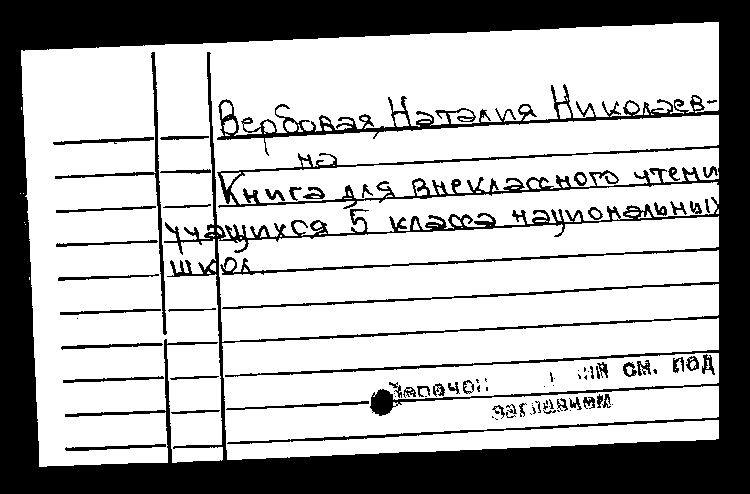 Вербовая, Наталия Николаев-
на
Книга для внеклассного чтени
учащихся 5 класса национальных
школ.
см. под
заглавием